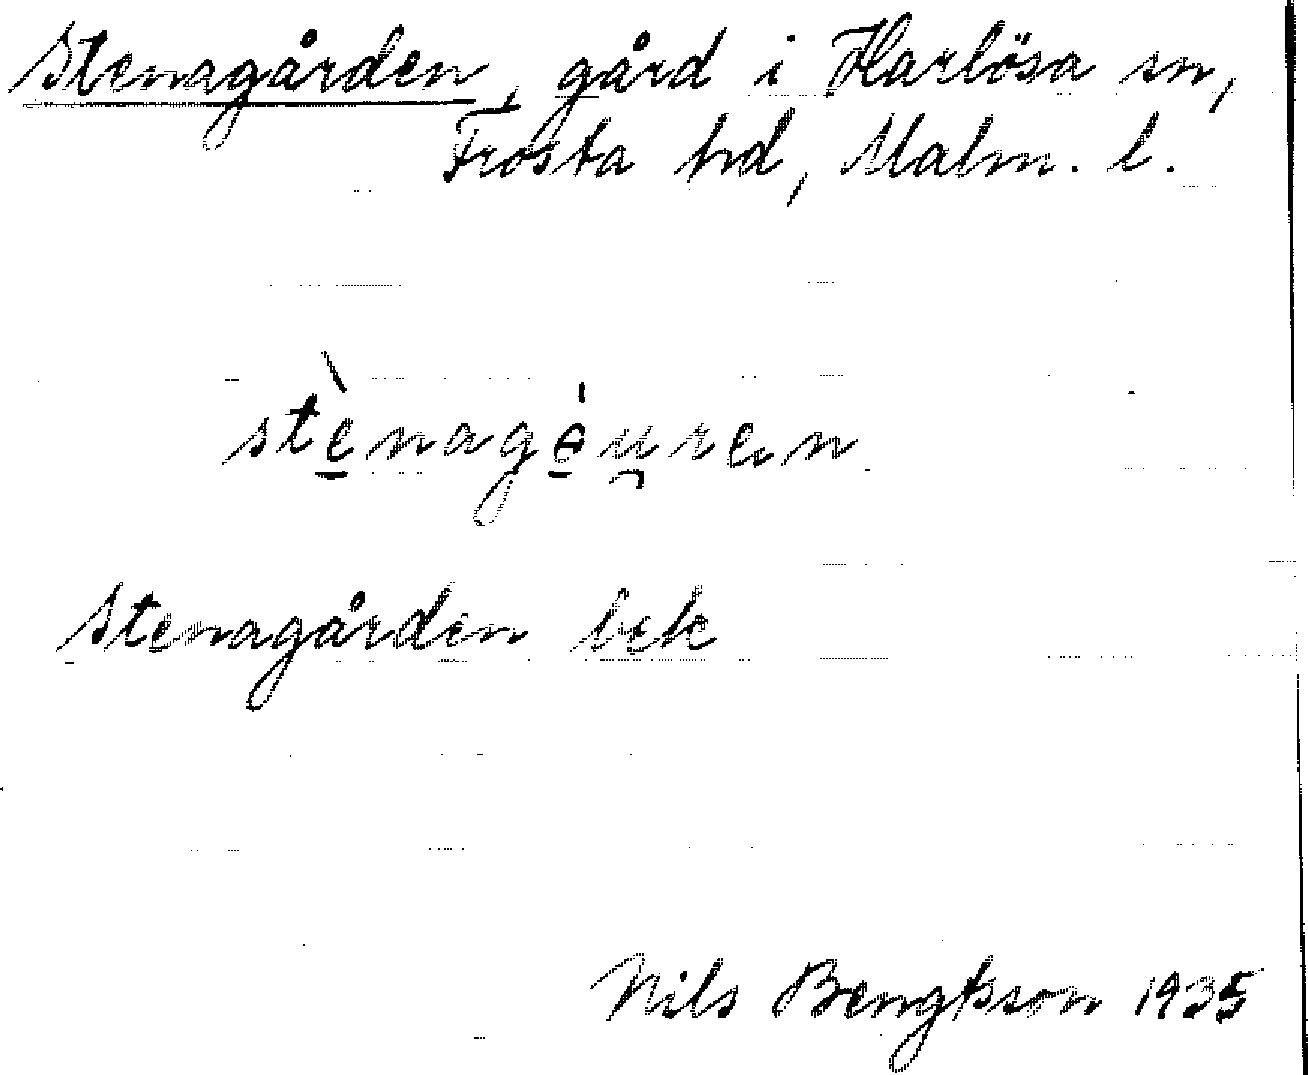 Stenagården, gård i Harlösa sn,
Frosta hd, Malm. l.
stè̠nagė̠u̯ren
Stenagården bek
Nils Bengtsson 1935